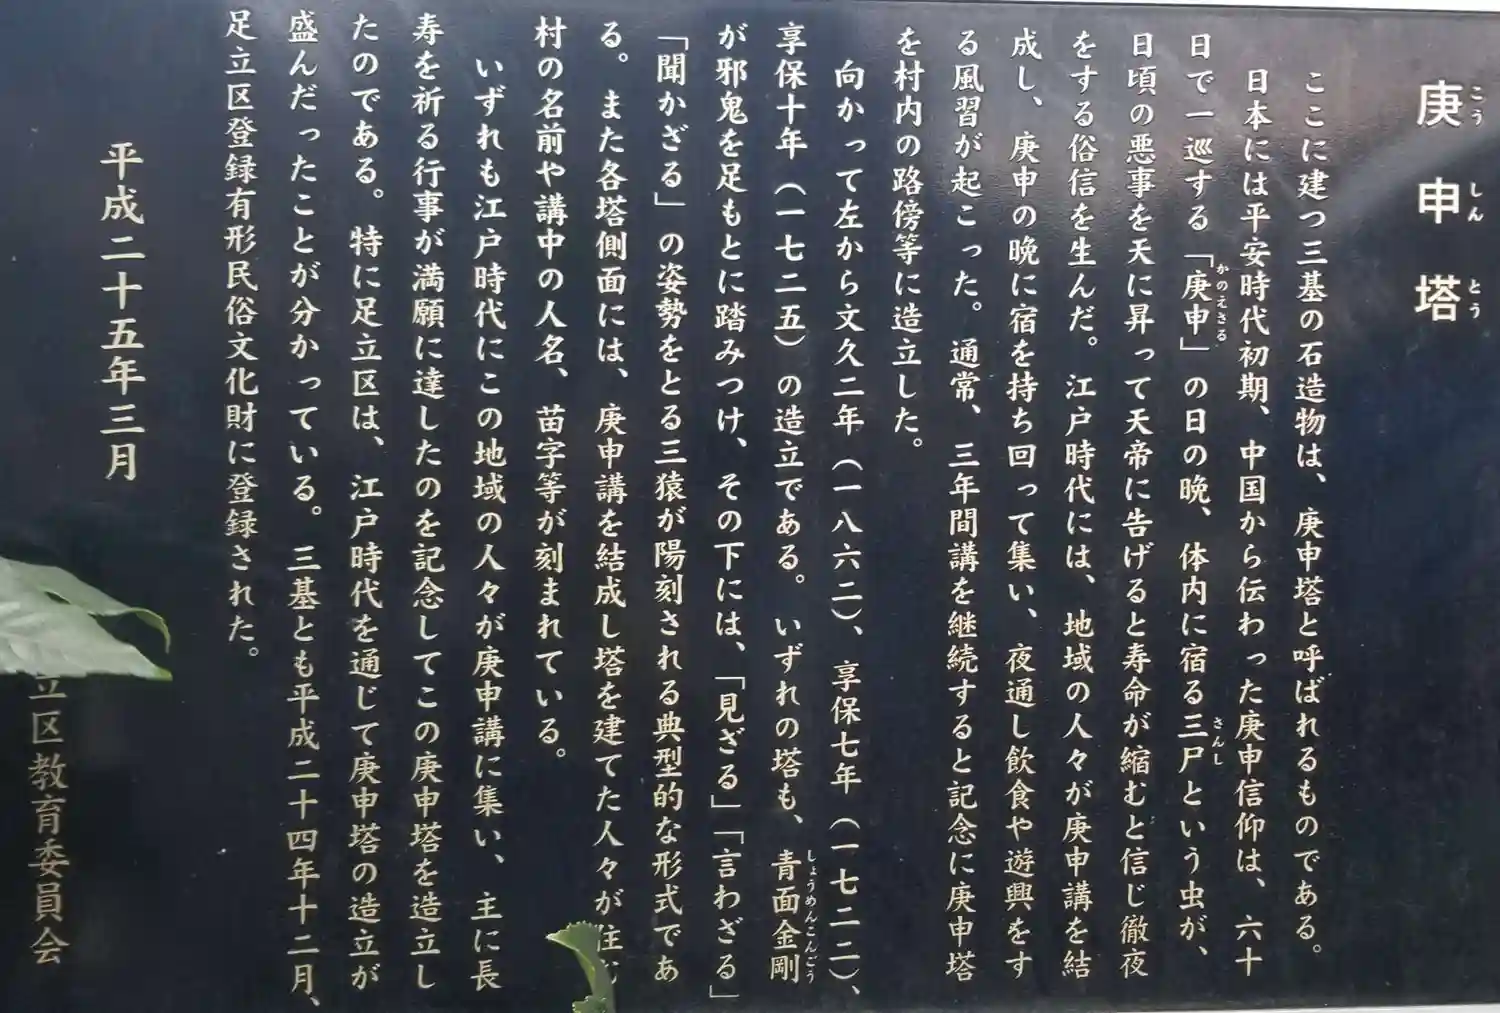 庚申塔
こうしんとう
ここに建つ三基の石造物は、庚申塔と呼ばれるものである。
日本には平安時代初期、中国から伝わった庚申信仰は、六十
日で一巡する「庚申」の日の晩、体内に宿る三尸という虫が、
かのえさる
さんし
日頃の悪事を天に昇って天帝に告げると寿命が縮むと信じ徹夜
をする俗信を生んだ。江戸時代には、地域の人々が庚申講を結
成し、庚申の晩に宿を持ち回って集い、夜通し飲食や遊興をす
る風習が起こった。通常、三年間講を継続すると記念に庚申塔
を村内の路傍等に造立した。
向かって左から文久二年（一八六二）、享保七年（一七二二）、
享保十年（一七二五）の造立である。いずれの塔も、青面金剛
しょうめんこんごう
が邪鬼を足もとに踏みつけ、その下には、「見ざる」「言わざる」
「聞かざる」の姿勢をとる三猿が陽刻される典型的な形式であ
る。また各塔側面には、庚申講を結成し塔を建てた人々が住
村の名前や講中の人名、苗字等が刻まれている。
いずれも江戸時代にこの地域の人々が庚申講に集い、主に長
寿を祈る行事が満願に達したのを記念してこの庚申塔を造立し
たのである。特に足立区は、江戸時代を通じて庚申塔の造立が
盛んだったことが分かっている。三基とも平成二十四年十二月、
足立区登録有形民俗文化財に登録された。
平成二十五年三月
立区教育委員会